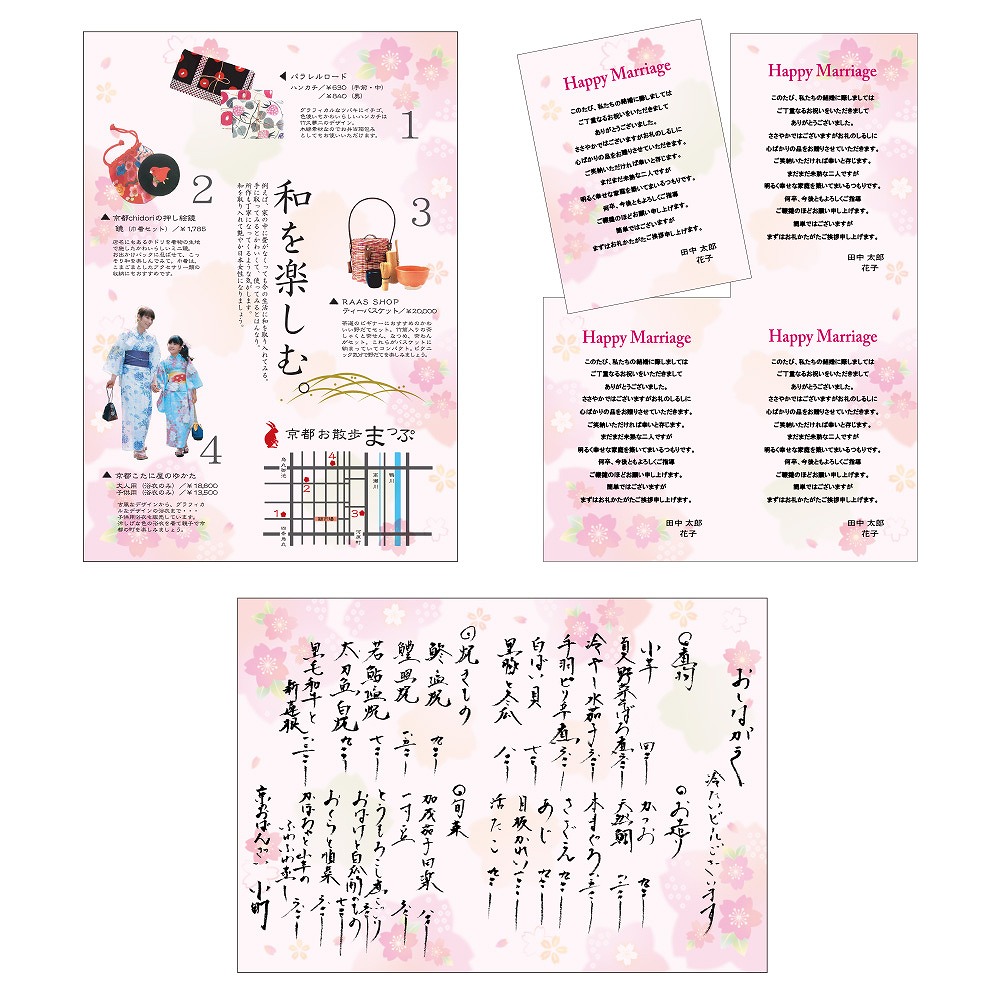 パラレルロード
ハンカチ/￥630（手前・中）
/￥840（奥）
グラフィカルなツバキにイチゴ、
色使いもかわいらしいハンカチは
竹久夢二のデザイン。
としてもお使いいただけます。
1
2
京都chidoriの押し絵鏡
鏡（巾着セット）/￥1,785
店名にもあるチドリを着物の生地
で施したかわいらしいミニ鏡。
お出かけバックに忍ばせて、こっ
そり和を楽しんでみて。小巾着は、
こまごまとしたアクセサリー類の
収納にもおすすめです。
和を楽しむ。
例えば、家の中に畳がなくても今の生活に和を取り入れてみる。
手に取ってみるとかわいくて、使ってみるとはんなり。
所作も丁寧になってくるような気がします。
和を取り入れて艶やか日本女性になりましょう。
3
RAAS SHOP
ティーバスケット/￥20,000
茶道のビギナーにおすすめのかわ
いい野だてセット。竹筒入りの茶
しゃくと茶せん、なつめ、茶わん
がセット。これらがバスケットに
納まっていてコンパクト。ピクニ
ック気分で野だてを楽しみましょう。
4
京都こたに屋のゆかた
大人用（浴衣のみ）/￥18,600
子供用（浴衣のみ）/￥13,500
古風なデザインから、グラフィカ
ルなデザインの浴衣まで・・・
子供用浴衣も販売しています。
涼しげな色の浴衣を着て親子で京
都の町を楽しみましょう。
京都お散歩まっぷ
烏丸御池
4
高瀬川
鴨川
2
1
3
四条烏丸
河原町
Happy Marriage
このたび、私たちの結婚に際しましては
ご丁重なるお祝いをいただきまして
ありがとうございました。
ささやかではございますがお礼のしるしに
心ばかりの品をお贈りさせていただきます。
ご笑納いただければ幸いと存じます。
まだまだ未熟な二人ですが
明るく幸せな家庭を築いてまいるつもりです。
何卒、今後ともよろしくご指導
ご鞭撻のほどお願い申し上げます。
簡単ではございますが
まずはお礼かたがたご挨拶申し上げます。
田中 太郎
花子
Happy Marriage
このたび、私たちの結婚に際しましては
ご丁重なるお祝いをいただきまして
ありがとうございました。
ささやかではございますがお礼のしるしに
心ばかりの品をお贈りさせていただきます。
ご笑納いただければ幸いと存じます。
まだまだ未熟な二人ですが
明るく幸せな家庭を築いてまいるつもりです。
何卒、今後ともよろしくご指導
ご鞭撻のほどお願い申し上げます。
簡単ではございますが
まずはお礼かたがたご挨拶申し上げます。
田中 太郎
花子
Happy Marriage
このたび、私たちの結婚に際しましては
ご丁重なるお祝いをいただきまして
ありがとうございました。
ささやかではございますがお礼のしるしに
心ばかりの品をお贈りさせていただきます。
ご笑納いただければ幸いと存じます。
まだまだ未熟な二人ですが
明るく幸せな家庭を築いてまいるつもりです。
何卒、今後ともよろしくご指導
ご鞭撻のほどお願い申し上げます。
簡単ではございますが
まずはお礼かたがたご挨拶申し上げます。
田中 太郎
花子
Happy Marriage
このたび、私たちの結婚に際しましては
ご丁重なるお祝いをいただきまして
ありがとうございました。
ささやかではございますがお礼のしるしに
心ばかりの品をお贈りさせていただきます。
ご笑納いただければ幸いと存じます。
まだまだ未熟な二人ですが
明るく幸せな家庭を築いてまいるつもりです。
何卒、今後ともよろしくご指導
ご鞭撻のほどお願い申し上げます。
簡単ではございますが
まずはお礼かたがたご挨拶申し上げます。
田中 太郎
花子
おしながき
冷たいビールございます
小芋
夏野菜そぼろ煮
冷やし水茄子
手羽ピリ辛煮
白ばい貝
黒豚と冬瓜
焼きもの
鱧塩焼
若鮎塩焼
太刀魚白焼
黒毛和牛と
新蓮根
お造り
かつお
天然鯛
本まぐろ
さざえ
あじ
目板かれい
活たこ
旬菜
加茂茄子田楽
一寸豆
とうもろこし
おくらと
かぼちゃと小芋の
ふわふわ蒸し
京おばんざい 小町